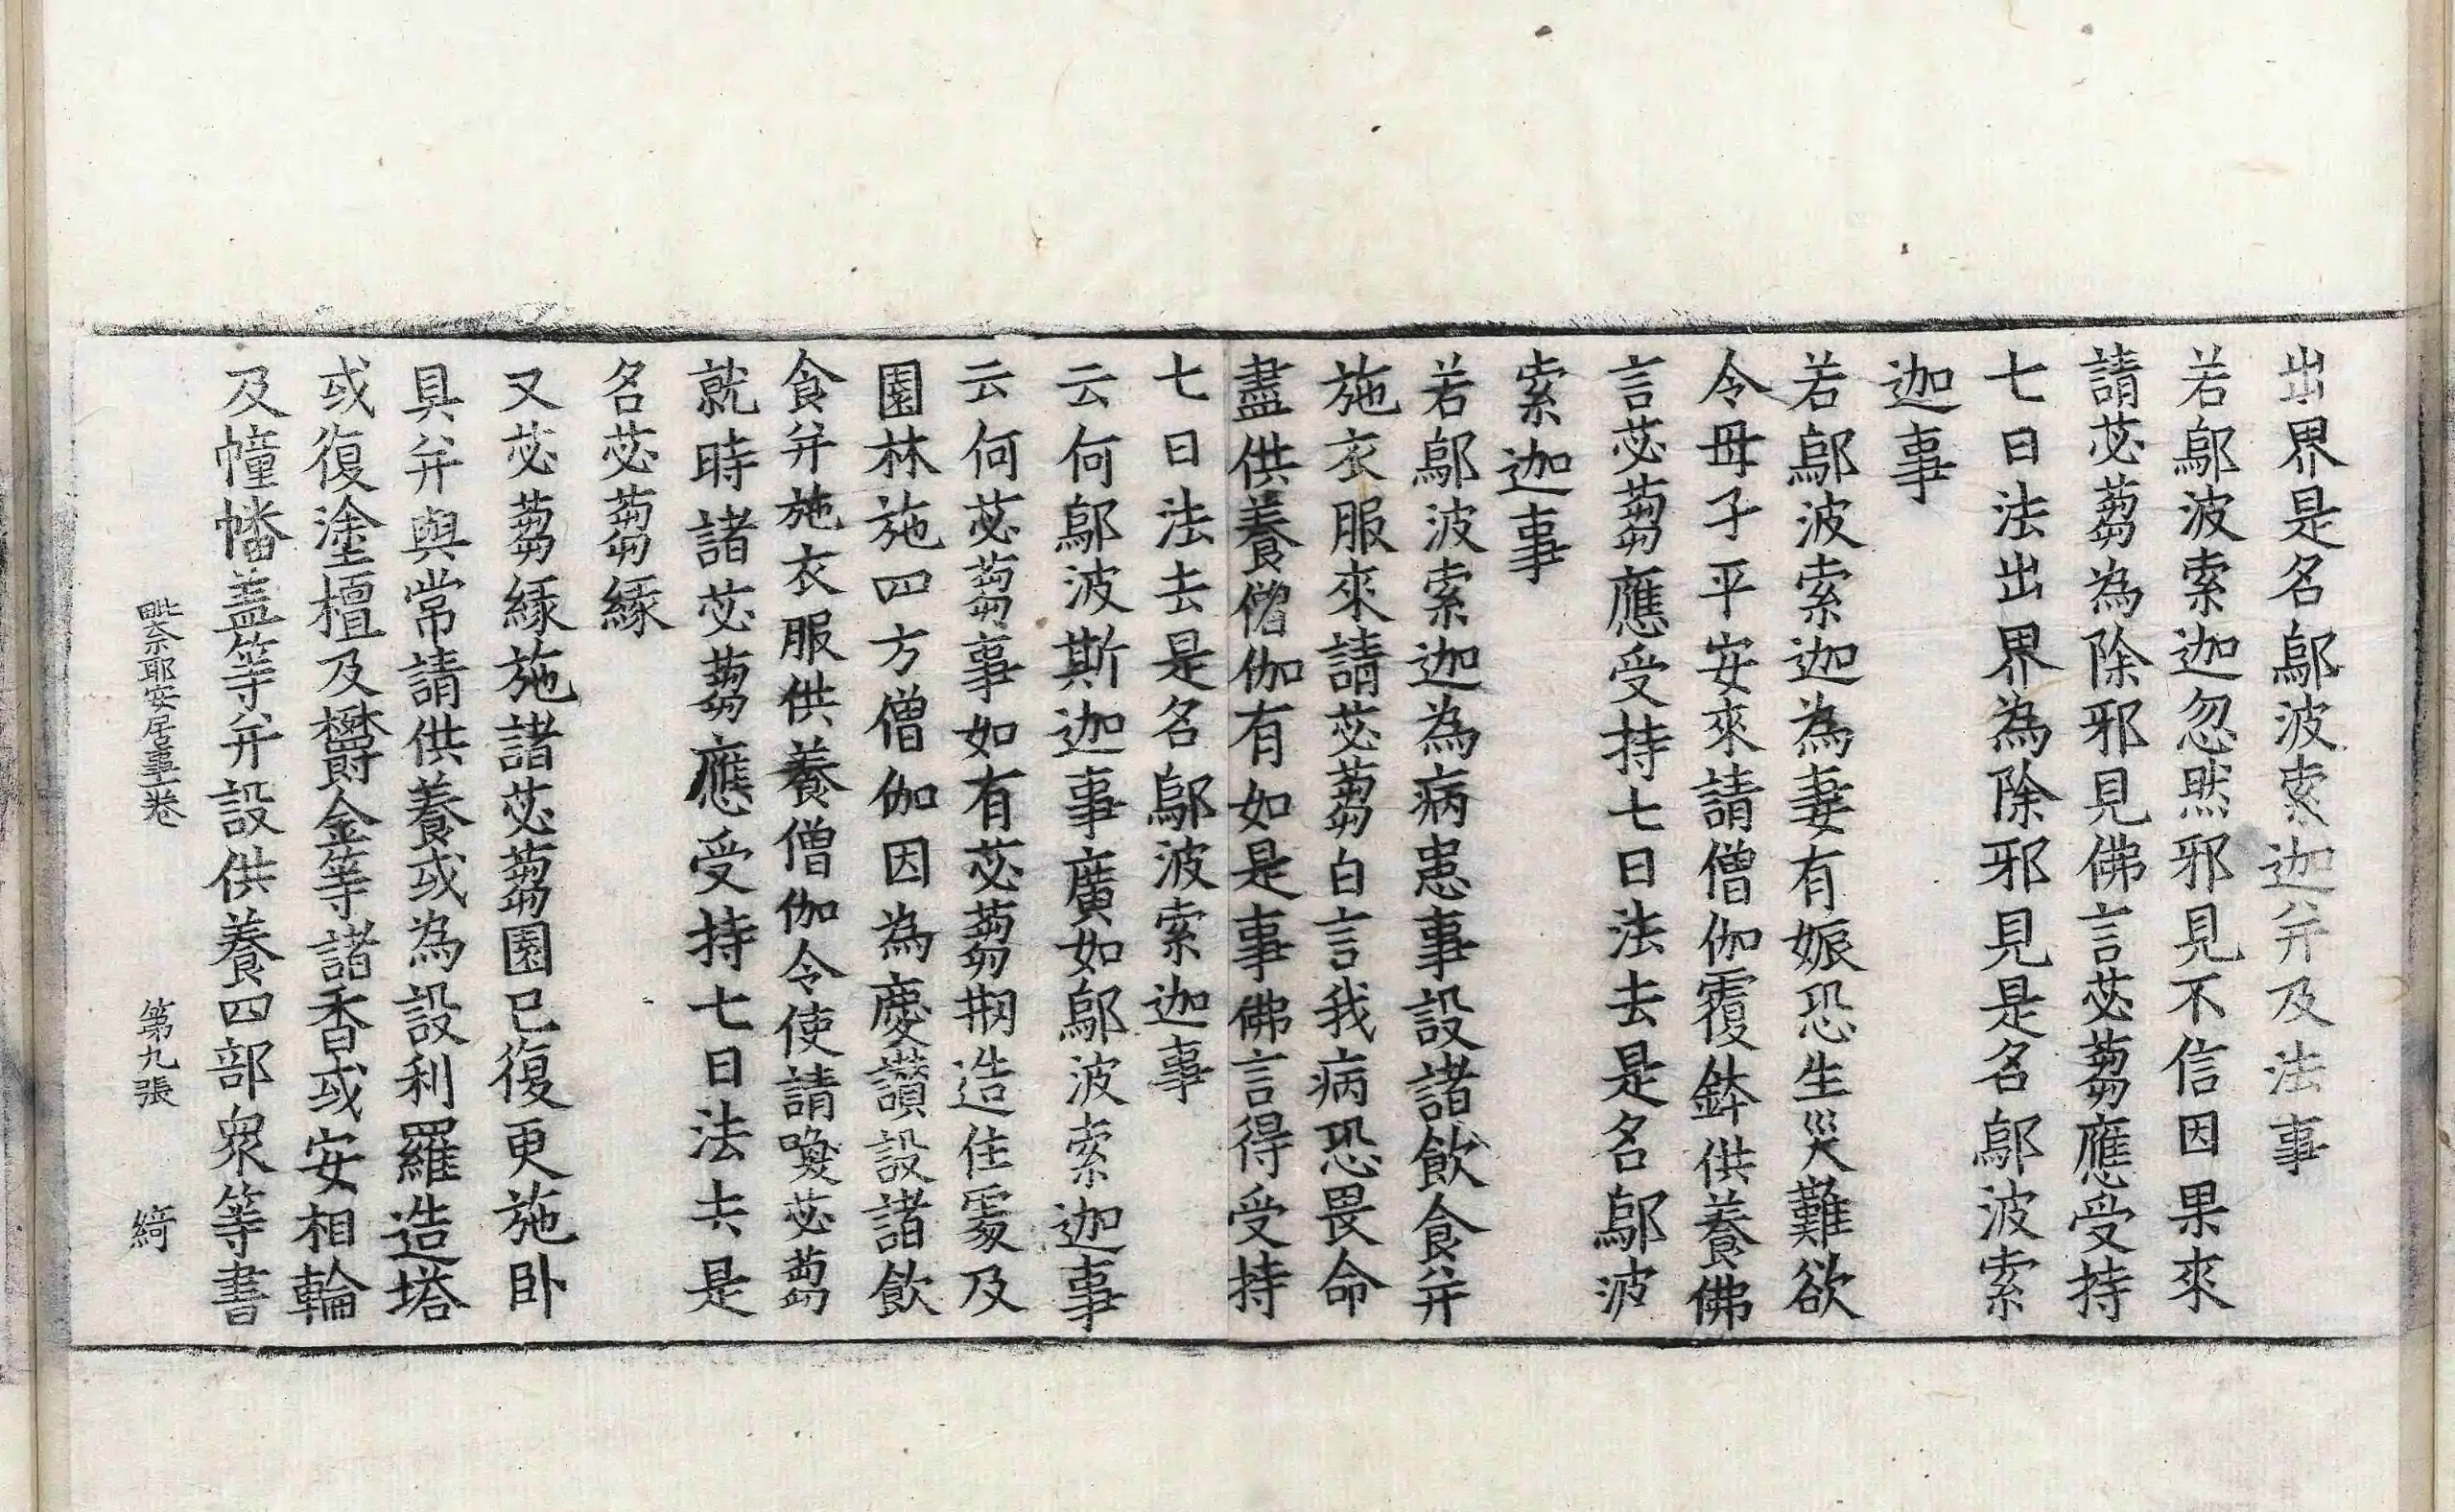 出界是名鄔波索迦并及法事
若鄔波索迦忽然邪見不信因果來
請苾蒭為除邪見佛言苾蒭應受持
七日法出界為除邪見是名鄔波索
迦事
若鄔波索迦為妻有娠恐生災難欲
令母子平安來請僧伽覆鉢供養佛
言苾蒭應受持七日法去是名鄔波
索迦事
若鄔波索迦為病患事設諸飲食并
施衣服來請苾蒭白言我病恐畏命
盡供養僧伽有如是事佛言得受持
七日法去是名鄔波索迦事
云何鄔波斯迦事廣如鄔波索迦事
云何苾蒭事如有苾蒭剏造住處及
園林施四方僧伽因為慶讚設諸飲
食并施衣服供養僧伽令使請喚苾蒭
就時諸苾蒭應受持七日法去是
名苾蒭緣
又苾蒭緣施諸苾蒭園已復更施臥
具并與常請供養或為設利羅造塔
或復塗檀及欝金等諸香或安相輪
及幢幡盖等并設供養四部衆等書
毗奈耶安居事一卷 第九張 綺